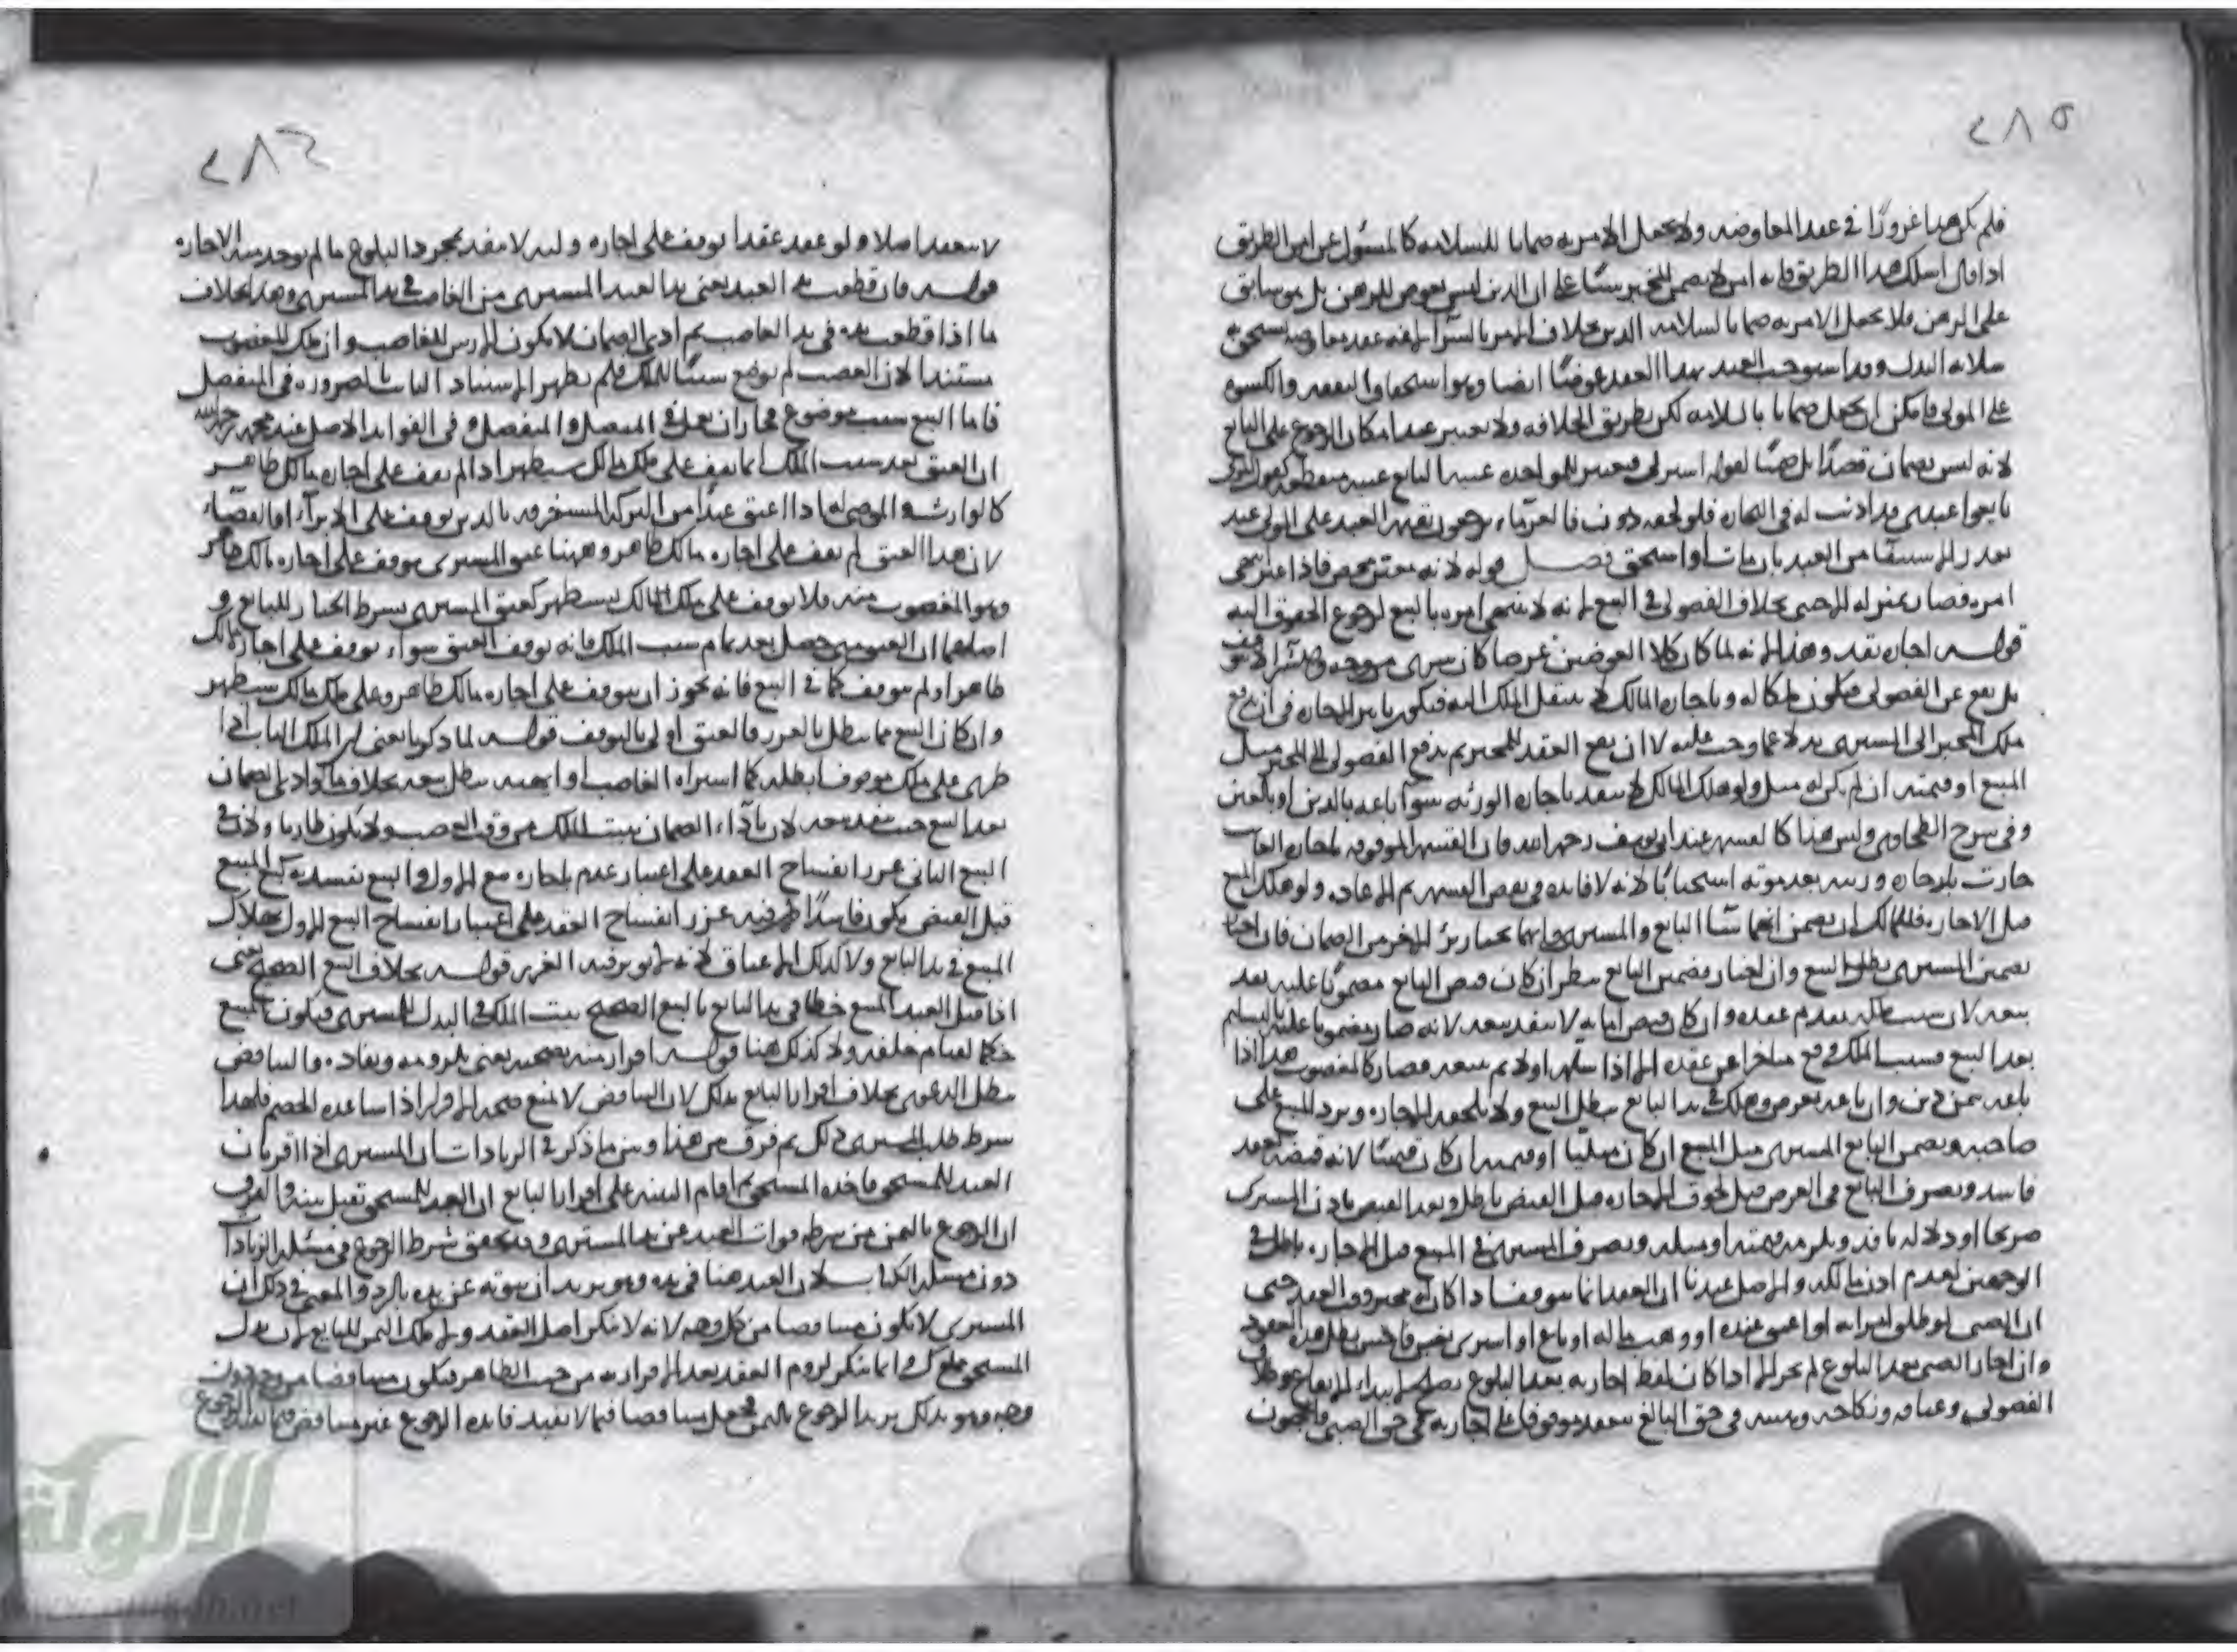 ٢٨٥
فلم يكن هذا غرورًا في عقد المعاوضه ولا يجعل الامر به ضمانا للسلامه كالمسئول عن امن الطريق
اذا قال اسلك هذا الطريق فانه امن لا يضمن المخبر شيئا على ان الدين ليس بعوض للرهن بل هو سابق
على الرهن فلا يجعل الامر به ضمانا لسلامه الدين بخلاف الامر بالشرا لانه عقد معاوضه يستحق به
سلامه البدل وقد استوجب العبد بهذا العقد عوضًا ايضا وهو استحقاق النفقه والكسوه
على المولى فامكن ان يجعل ضمانا بالسلامه لكن بطريق الخلافه ولا يعتبر عند امكان الرجوع على البايع
لانه ليس بضمان قصدًا بل ضمنًا لقوله اشترني فيعتبر للمواخذه عند البايع غيبه منقطعه كقول المولى
بايعوا عبدي قد اذنت له في التجاره فلو لحقه ديون فالغرماء يرجعون بقيمه العبد على المولى عند
تعذر الاستيفا من العبد بان مات او استحق فصل قوله لانه معبر محض فاذا عبر انتهى
امره فصار بمنزله الاجنبي بخلاف الفضولي في البيع لانه لا ينتهي امره بالبيع لرجوع الحقوق اليه
قوله اجازه نقد وهذا لانه لما كان كلا العوضين عرضا كان شرى من وجه والشرا لا يتوقف
بل يقع عن الفضولي فيكون ملكا له وباجازه المالك لا ينتقل الملك اليه فيكون تاثير الاجازه في ان يدفع
ملك المجيز الى المشتري بدلا عما وجب عليه لا ان يقع العقد للمجيز ثم يدفع الفضولي الى المجيز مثل
المبيع او قيمته ان لم يكن له مثل ولو هلك المالك لا ينفذ باجازه الورثه سوا باعه بالدين او بالعين
وفي شرح الطحاوي وليس هذا كالقسمه عند ابي يوسف رحمه الله فان القسمه الموقوفه لاجازه الغايب
جازت باجازه ورثته بعد موته استحسانًا لانه لا فايده في نقض القسمه ثم الاعاده ولو هلك المبيع
قبل الاجازه فللمالك ان يضمن ايهما شا البايع والمشتري وايهما يختار برئ الاخر من الضمان فان اختار
تضمين المشتري بطل البيع وان اختار تضمين البايع ينظر ان كان قبض البايع مضمونًا عليه نفذ
بيعه لان سبب ملكه تقدم عقده وان كان قبض امانه لا ينفذ بيعه لانه صار مضمونا عليه بالتسليم
بعد البيع وسبب الملك وقع متاخرا عن عقده الا اذا سلمه اولا ثم بيعه فصار كالمغصوب هذا اذا
باعه بثمن دين وان باعه بعرض وهلك في يد البايع يبطل البيع ولا يلحقه الاجازه ويرد المبيع على
صاحبه ويضمن البايع المشتري مثل المبيع ان كان مثليًا او قيمته ان كان قيميًا لانه قبضه بعقد
فاسد وتصرف البايع في العرض قبل لحوق الاجازه قبل القبض باطل وبعد القبض باذن المشتري
صريحا او دلاله نافذ ويلزمه قيمته او مثله وتصرف المشتري في المبيع قبل الاجازه باطل في
الوجهين لعدم اذن مالكه والاصل عندنا ان العقد انما يتوقف اذا كان له مجيز وقت العقد حتى
ان الصبي لو طلق امراته او اعتق عبده او وهب ماله او باع او اشترى بغبن فاحش بطل هذه العقود
وان اجاز الصبي بعد البلوغ لم يجز الا اذا كان بلفظ اجازته بعد البلوغ يصلح لابتداء الايقاع وطلاق
الفضولي وعتاقه ونكاحه وهبته في حق البالغ ينعقد موقوفا على اجازته في حق الصبي والمجنون
٢٨٦
لا ينعقد اصلا ولو عقد عقدا يوقف على اجازه وليه لا ينفذ بمجرد البلوغ ما لم يوجد منه الاجازه
قوله فان قطعت يد العبد يعني يد العبد المشترى من الغاصب في يد المشتري وهذا بخلاف
ما اذا قطعت يده في يد الغاصب ثم ادى الضمان لا يكون الارش للغاصب وان ملك المغصوب
مستندا لان الغصب لم يوضع سببًا للملك فلم يظهر الاستناد الثابت بالضروره في المنفصل
فاما البيع سبب موضوع فجاز ان يعمل في المتصل والمنفصل وفي الفوايد الاصل عند محمد رحمه الله
ان العتق بعد سبب الملك انما يقف على ملك مالك سيظهر اذا لم يقف على اجازه مالك ظاهر
كالوارث والموصى له اذا اعتق عبدًا من التركه المستغرقه بالدين يوقف على الابراء او القضاء
لان هذا العتق لم يقف على اجازه مالك ظاهر وههنا عتق المشتري يوقف على اجازه مالك ظاهر
وهو المغصوب منه فلا يوقف على ملك المالك سيظهر كعتق المشتري بشرط الخيار للبايع و
اصلهما ان العتق متى حصل بعد تمام سبب الملك فانه يوقف العتق سواء يوقف على اجازه مالك
ظاهر او لم يتوقف كما في البيع فانه يجوز ان يتوقف على اجازه مالك ظاهر وعلى ملك مالك سيظهر
وان كان البيع مما يبطل بالغرر فالعتق اولى بالتوقف قوله لما ذكرنا يعني ان الملك البات اذا
طرى على ملك موقوف ابطله كما اشتراه الغاصب او اتهبه يبطل بيعه بخلاف ما لو ادى الضمان
بعد البيع حيث ينفذ بيعه لان باداء الضمان يثبت الملك من وقت الغصب ولا يكون طاريا ولان في
البيع الثاني غرر انفساخ العقد على اعتبار عدم الاجازه مع الاول والبيع يفسد به كبيع المبيع
قبل القبض يكون فاسدًا لان فيه غرر انفساخ العقد على اعتبار انفساخ البيع الاول بهلاك
المبيع في يد البايع ولا كذلك الاعتاق لانه لا يوثر فيه الغرر قوله بخلاف البيع الصحيح حتى
اذا قتل العبد المبيع خطا في يد البايع بالبيع الصحيح يثبت الملك في البدل للمشتري فيكون المبيع
حكما لقيام خلفه ولا كذلك هنا قوله اقرار منه بصحته يعني بلزومه ونفاذه فالتناقض
يبطل الدعوى بخلاف اقرار البايع بذلك لان التناقض لا يمنع صحه الاقرار اذا ساعده الخصم فلهذا
شرط طلب المشتري ذلك ثم فرق بين هذا وبين ما ذكر في الزيادات ان المشتري اذا اقر بان
العبد للمستحق فاخذه المستحق ثم اقام البينه على اقرار البايع ان العبد للمستحق تقبل بينه والفرق
ان الرجوع بالثمن من شرطه فوات العبد عن يد المشتري وقد تحقق شرط الرجوع في مسئله الزيادات
دون مسئله الكتاب لان العبد هنا في يده وهو يريد ان يفوته عن يده بالرد والمعنى في ذلك ان
المشتري لا يكون مناقضا من كل وجه لانه لا ينكر اصل العقد ولا ملك الثمن للبايع لان بدل
المستحق مملوك وانما ينكر لزوم العقد بعد الاقرار به من حيث الظاهر فيكون مناقضا من وجه دون
وجه وهو بذلك يريد الرجوع بالثمن فجعل مناقضا فيما لا يفيد فايده الرجوع غير مناقض فيما يفيد الرجوع
الألوكة